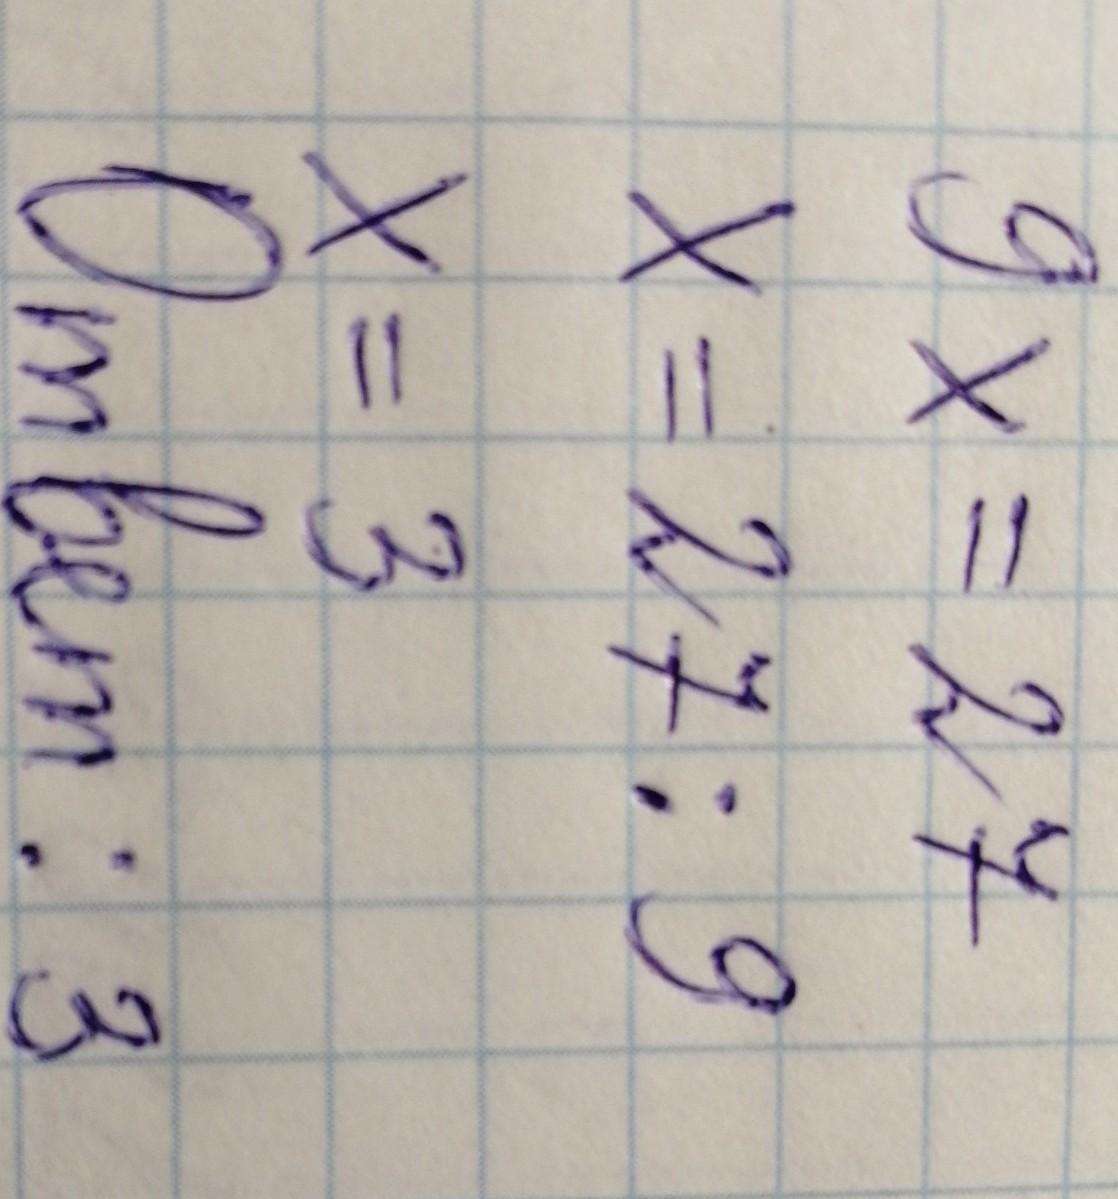 9x=27
x=27:9
x=3
Ответ: 3